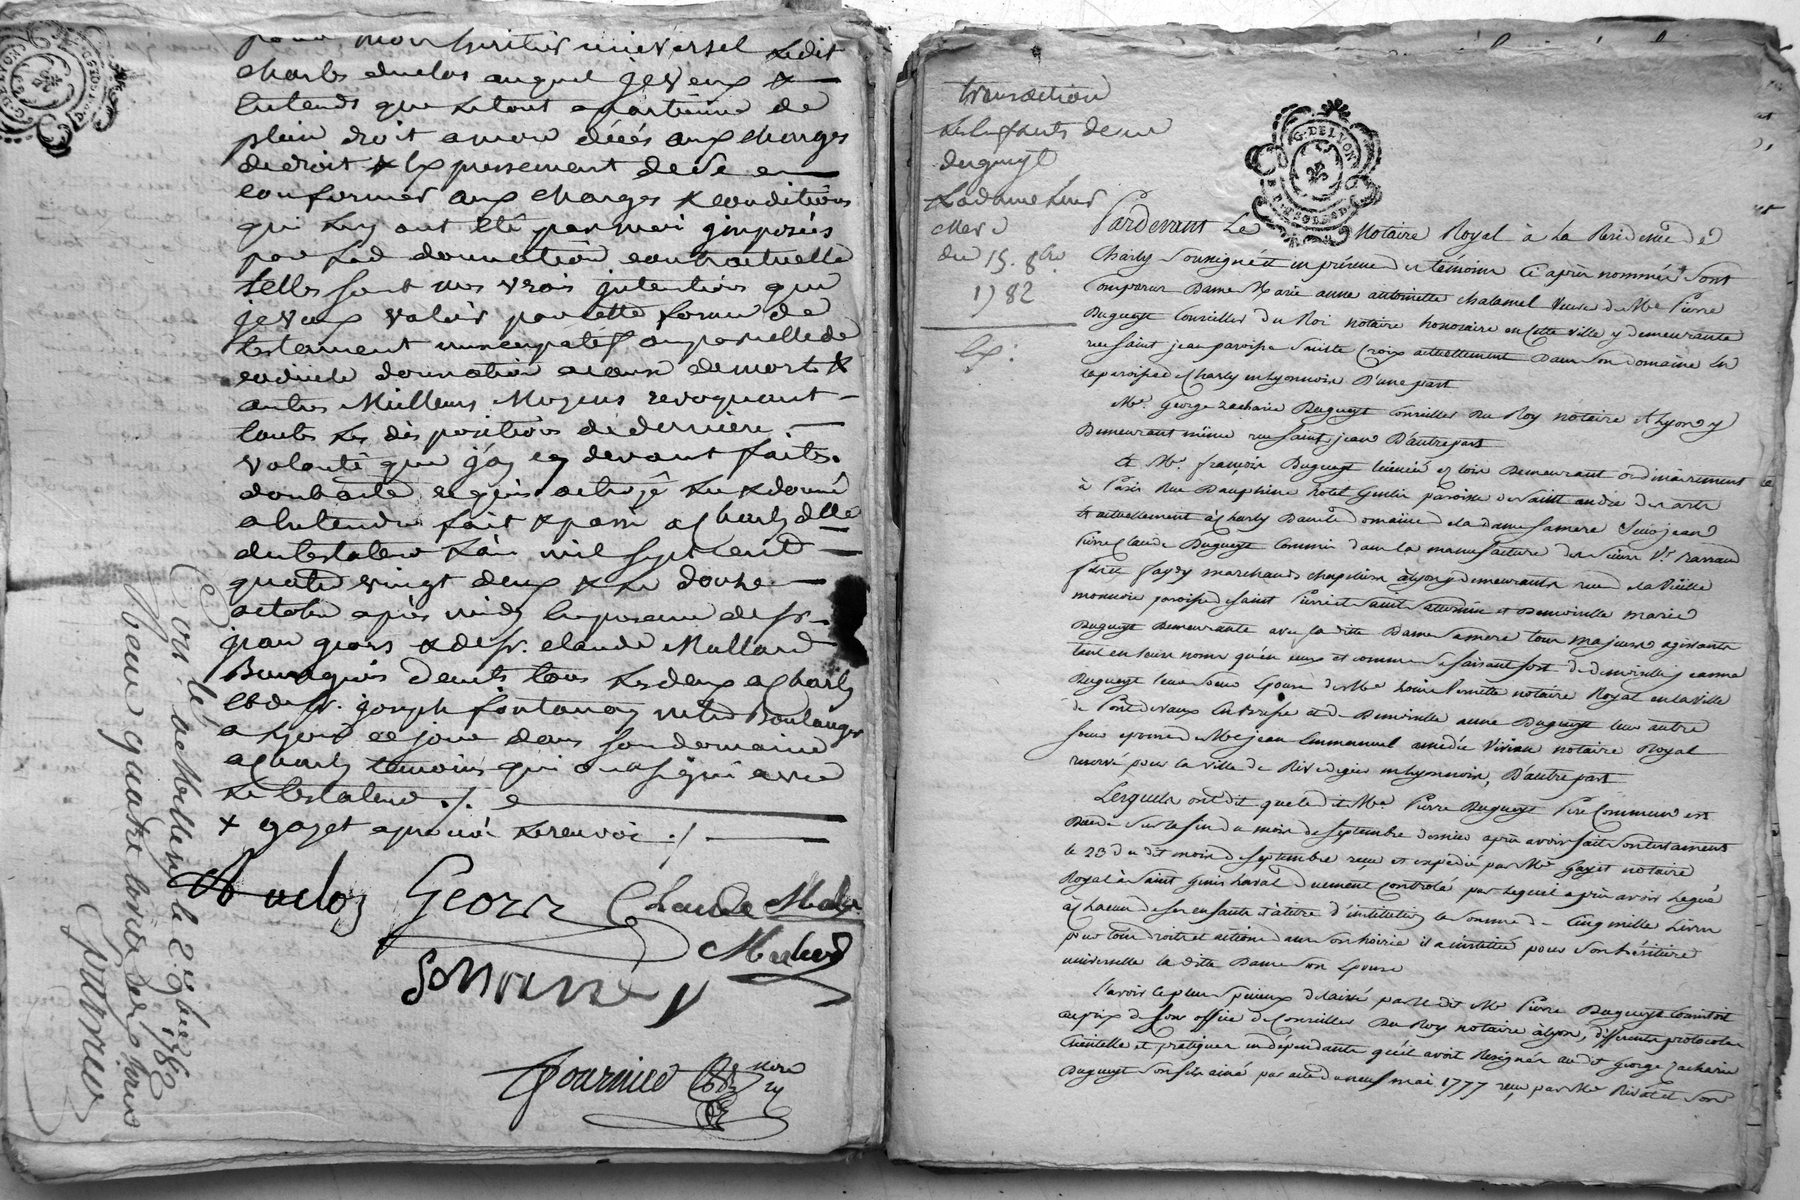 pour mon heritier universel ledit
charles duclos auquel je veux &
entends que le tout apartienne de
plein droit a mon décés aux charges
de droit & expressement de se
conformer aux charges & conditions
qui luy ont été par moi imposées
par lad donnation contractuelle
telles sont mes vrais intentions que
je veux valoir par cette forme de
testament nuncupatif ou par celle de
codicile donnation a cause de mort &
autres Meilleurs Moyens revoquant
toutes les dispositions de derniere
volonté que j'ay cy devant faites.
dont acte requis octroyé lu & donné
a entendre fait & passé a Charly dlle
du testateur l'an mil sept cent
quatre vingt deux & le douze
octobre après midy en presence de sr.
jean geors & de sr. claude Mallard
Bourgeois dud lieu tous les deux a Charly
& de sr. joseph fontanay Boulanger
a Lyon ce jour dans son domaine
a Charly temoins qui ont signé avec
le testateur ./.
+ gayet aprouvé le renvoi ./.
Duclos Geors Claude
fournier
Con. lé a Millery le 2. 8bre 1782
Reçu quatre livres
fournier
transaction
les enfants de me
dugueyt
& la dame leur
mere
du 15. 8bre
1782
Ex:
G. DE LYON
Pardevant Le Notaire Royal à La Residence de
Charly soussigné et en présence des témoins ci après nommés sont
comparus Dame Marie anne antoinette chalamel veuve de Me. Pierre
Dugueyt Conseiller du Roi notaire honoraire en cette ville y demeurante
rue saint jean paroisse sainte Croix actuellement dans son domaine en
la paroisse de Charly en Lyonnois D'une part
Me. George zacharie Dugueyt conseiller du Roy notaire a Lyon y
Demeurant même rue saint jean D'autre part
Et Me. françois Dugueyt licencié es loix Demeurant ordinairement
à Paris Rue Dauphine hotel paroisse de saint andré des arts
et actuellement à Charly dans le domaine de la dame sa mere Sieur jean
Pierre Claude Dugueyt Commis dans la manufacture des sieurs
marchands chapeliers à Lyon y demeurant rue de la Vieille
monnoie paroisse saint Pierre et saint saturnin et Demoiselle marie
Dugueyt Demeurante avec la dite Dame sa mere tous majeurs agissants
tant en leurs noms qu'en ceux et comme se faisant fort de demoiselle jeanne
Dugueyt leur soeur Epouse de Me. notaire Royal en la ville
de Pont de vaux en Bresse et de Demoiselle anne Dugueyt leur autre
soeur epouse de Me. jean Emmanuel amédée notaire Royal
reservé pour la ville de Rive de gier en Lyonnois, D'autre part
Lesquels ont dit que ledit Me. Pierre Dugueyt Pere Commun est
Decedé sur la fin du mois de septembre dernier après avoir fait son testament
le 23 du dit mois de septembre reçu et expedié par Me. Gayet notaire
Royal à saint Genis Laval duement controlé par lequel après avoir Legué
à chacun de ses enfants à titre d'institution la somme de Cinq mille Livres
pour tous droits et actions dans son hoirie il a institué pour son héritiere
universelle la dite Dame son Epouse
L'avoir le plus précieux delaissé par le dit Me. Pierre Dugueyt consistoit
au prix de son office de Conseiller du Roy notaire à Lyon, differents protocoles
Clientelle et pratiques en dépendants qu'il avoit Resignés au dit George zacharie
Dugueyt son fils ainé par acte du neuf mai 1777 reçu par Me. et son